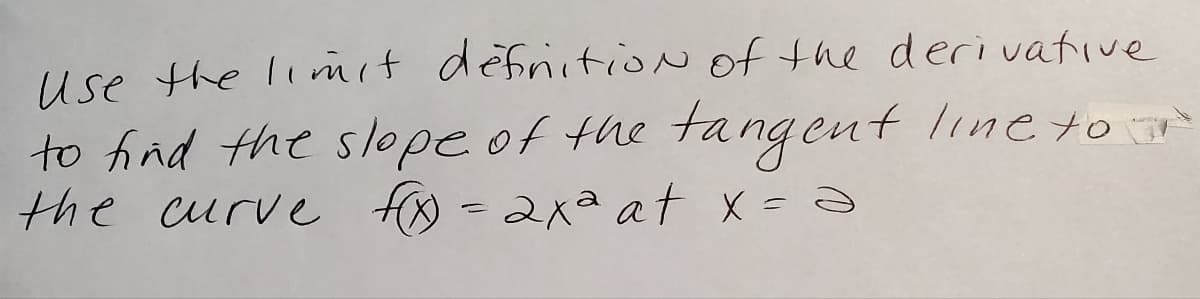 Use the limit definition of the derivative
to find the slope of the tangent line to
the curve f(x) = 2x² at x = 2